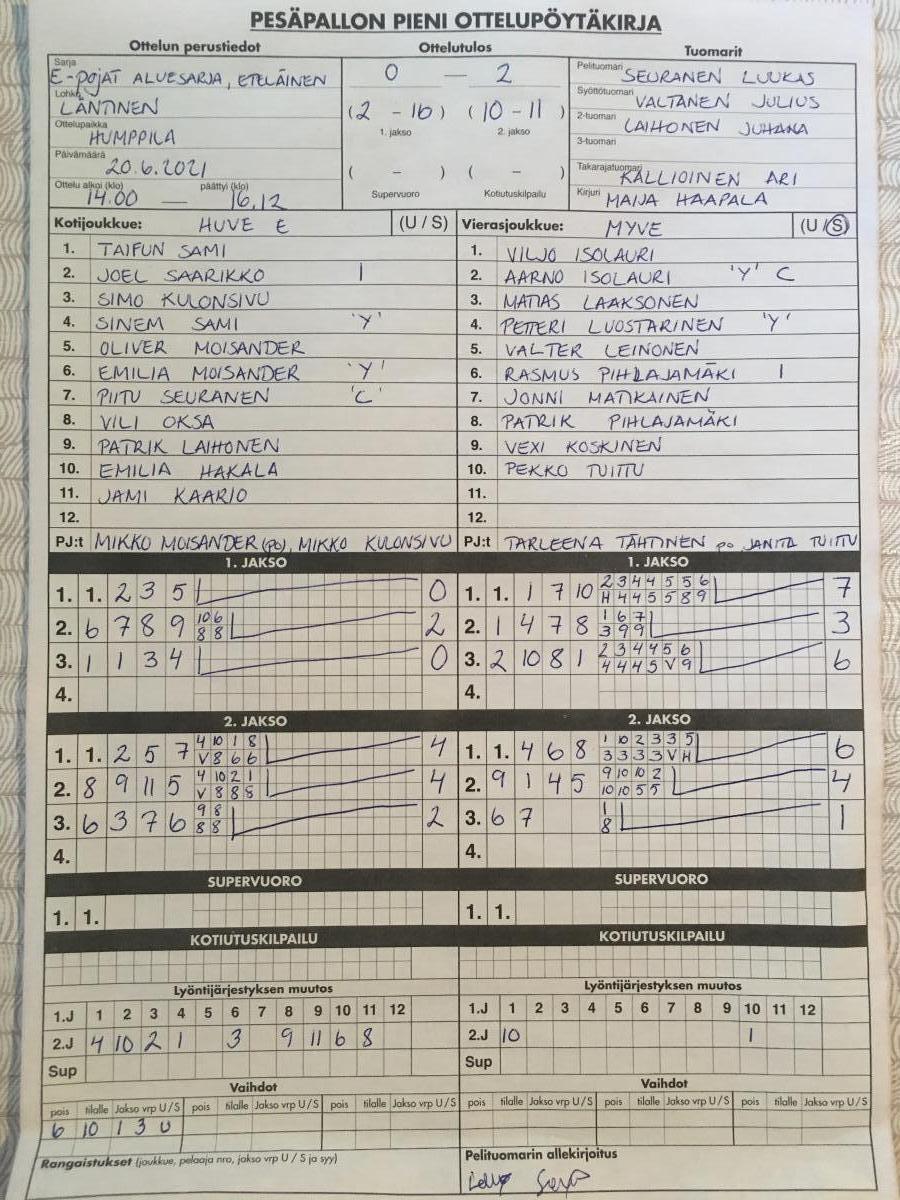 PESÄPALLON PIENI OTTELUPÖYTÄKIRJA
Ottelun perustiedot
Sarja
E-POJAT ALUESARJA, ETELÄINEN
Lohko
LÄNTINEN
Ottelupaikka
HUMPPILA
Päivämäärä
20.6.2021
Ottelu alkoi (klo) päättyi (klo)
14.00 — 16.12
Ottelutulos
0 — 2
(2 - 16) (10 - 11)
1. jakso 2. jakso
( - ) ( - )
Supervuoro Kotiutuskilpailu
Tuomarit
Pelituomari SEURANEN LUUKAS
Syöttötuomari VALTANEN JULIUS
2-tuomari LAIHONEN JUHANA
3-tuomari
Takarajatuomari KALLIOINEN ARI
Kirjuri MAIJA HAAPALA
Kotijoukkue: HUVE E (U / S)
1. TAIFUN SAMI
2. JOEL SAARIKKO I
3. SIMO KULONSIVU
4. SINEM SAMI 'Y'
5. OLIVER MOISANDER
6. EMILIA MOISANDER 'Y'
7. PIITU SEURANEN 'C'
8. VILI OKSA
9. PATRIK LAIHONEN
10. EMILIA HAKALA
11. JAMI KAARIO
12.
PJ:t MIKKO MOISANDER (PO), MIKKO KULONSIVU
Vierasjoukkue: MYVE (U / S)
1. VILJO ISOLAURI
2. AARNO ISOLAURI 'Y' C
3. MATIAS LAAKSONEN
4. PETTERI LUOSTARINEN 'Y'
5. VALTER LEINONEN
6. RASMUS PIHLAJAMÄKI I
7. JONNI MATIKAINEN
8. PATRIK PIHLAJAMÄKI
9. VEXI KOSKINEN
10. PEKKO TUITTU
11.
12.
PJ:t TARLEENA TÄHTINEN po JANITA TUITTU
1. JAKSO
1. 1. 2 3 5 0
2. 6 7 8 9 10 6 2
8 8
3. 1 1 3 4 0
4.
1. JAKSO
1. 1. 1 7 10 2 3 4 4 5 5 6 7
H 4 4 5 5 8 9
2. 1 4 7 8 1 6 7 3
3 9 9
3. 2 10 8 1 2 3 4 4 5 6 6
4 4 4 5 V 9
4.
2. JAKSO
1. 1. 2 5 7 4 10 1 8 4
V 8 6 6
2. 8 9 11 5 4 10 2 1 4
V 8 8 8
3. 6 3 7 6 9 8 2
8 8
4.
2. JAKSO
1. 1. 4 6 8 1 10 2 3 3 5 6
3 3 3 3 V H
2. 9 1 4 5 9 10 10 2 4
10 10 5 5
3. 6 7 1 1
8
4.
SUPERVUORO
1. 1.
SUPERVUORO
1. 1.
KOTIUTUSKILPAILU
KOTIUTUSKILPAILU
Lyöntijärjestyksen muutos
1.J 1 2 3 4 5 6 7 8 9 10 11 12
2.J 4 10 2 1 3 9 11 6 8
Sup
Lyöntijärjestyksen muutos
1.J 1 2 3 4 5 6 7 8 9 10 11 12
2.J 10 1
Sup
Vaihdot
pois tilalle Jakso vrp U / S pois tilalle Jakso vrp U / S pois tilalle Jakso vrp U / S
6 10 1 3 U
Vaihdot
pois tilalle Jakso vrp U / S pois tilalle Jakso vrp U / S pois tilalle Jakso vrp U / S
Rangaistukset (joukkue, pelaaja nro, jakso vrp U / S ja syy)
Pelituomarin allekirjoitus